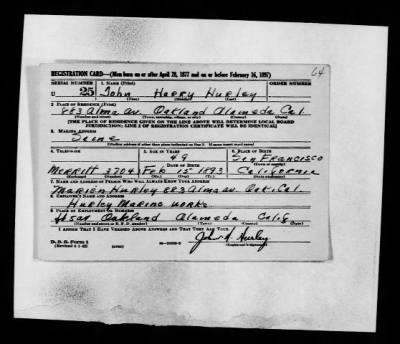 64
REGISTRATION CARD—(Men born on or after April 28, 1877 and on or before February 16, 1897)
SERIAL NUMBER 1. NAME (Print) ORDER NUMBER
U 25 John Harry Hurley
2. PLACE OF RESIDENCE (Print)
883 Alma Av. Oakland Alameda Cal.
[THE PLACE OF RESIDENCE GIVEN ON THE LINE ABOVE WILL DETERMINE LOCAL BOARD
JURISDICTION; LINE 2 OF REGISTRATION CERTIFICATE WILL BE IDENTICAL]
3. MAILING ADDRESS
Same
[Mailing address if other than place indicated on line 2. If same insert word same]
4. TELEPHONE 5. AGE IN YEARS 6. PLACE OF BIRTH
49 San Francisco
DATE OF BIRTH
Merritt 3704 Feb 15 1893 California
7. NAME AND ADDRESS OF PERSON WHO WILL ALWAYS KNOW YOUR ADDRESS
Marion Hurley 883 Alma av. Oak. Cal.
8. EMPLOYER'S NAME AND ADDRESS
Hurley Marine Works
9. PLACE OF EMPLOYMENT OR BUSINESS
Oakland Alameda Calif
I AFFIRM THAT I HAVE VERIFIED ABOVE ANSWERS AND THAT THEY ARE TRUE.
D. S. S. Form 1
(Revised 4-1-42)
John H. Hurley